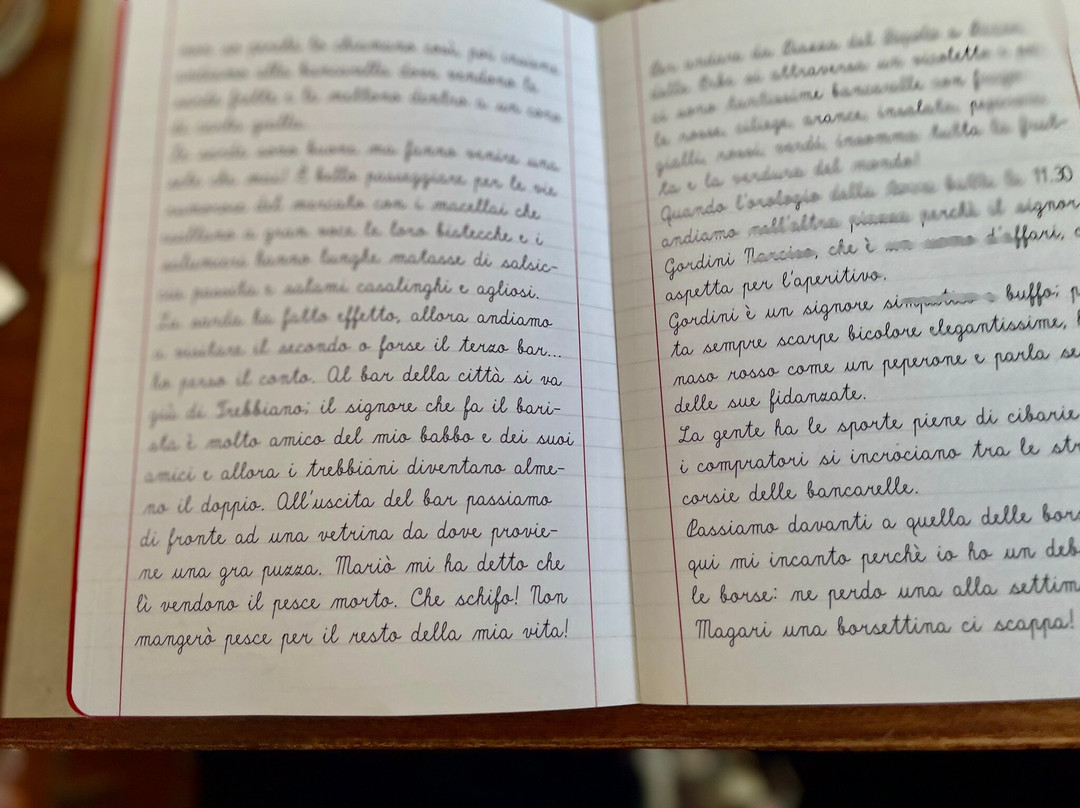 funno venire una
È bello passeggiare per le vie
del mercato con i macellai che
a gran voce le loro bistecche e i
hanno lunghe matasse di salsic-
e salami casalinghi e agliosi.
ha fatto effetto, allora andiamo
a visitare il secondo o forse il terzo bar...
ho perso il conto. Al bar della città si va
giù di Trebbiano; il signore che fa il bari-
sta è molto amico del mio babbo e dei suoi
amici e allora i trebbiani diventano alme-
no il doppio. All'uscita del bar passiamo
di fronte ad una vetrina da dove provie-
ne una gra puzza. Mariò mi ha detto che
lì vendono il pesce morto. Che schifo! Non
mangerò pesce per il resto della mia vita!
Per andare da Piazza del Popolo a Piazza
delle Erbe si attraversa un vicoletto
ci sono tantissime bancarelle con
le rosse, ciliege, arance, insalata, peperoni
gialli, rossi, verdi, insomma tutta la frut-
ta e la verdura del mondo!
Quando l'orologio della batte le 11.30
andiamo nell'altra piazza perchè il signor
Gordini Narciso, che è un uomo d'affari, c
aspetta per l'aperitivo.
Gordini è un signore simpatico e buffo; p
ta sempre scarpe bicolore elegantissime, h
naso rosso come un peperone e parla se
delle sue fidanzate.
La gente ha le sporte piene di cibarie
i compratori si incrociano tra le str
corsie delle bancarelle.
Passiamo davanti a quella delle bors
qui mi incanto perchè io ho un deb
le borse: ne perdo una alla settim
Magari una borsettina ci scappa!